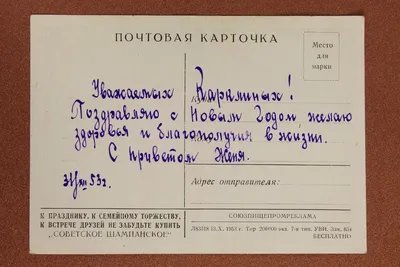 ПОЧТОВАЯ КАРТОЧКА
Место
для
марки
Уважаемых Каркминых!
Поздравляю с Новым Годом, желаю
здоровья и благополучия в жизни.
С приветом Женя.
53г.
Адрес отправителя:
К ПРАЗДНИКУ, К СЕМЕЙНОМУ ТОРЖЕСТВУ,
К ВСТРЕЧЕ ДРУЗЕЙ НЕ ЗАБУДЬТЕ КУПИТЬ
„СОВЕТСКОЕ ШАМПАНСКОЕ"
СОЮЗПИЩЕПРОМРЕКЛАМА
1953 г. Тир. 200000 экз.
БЕСПЛАТНО